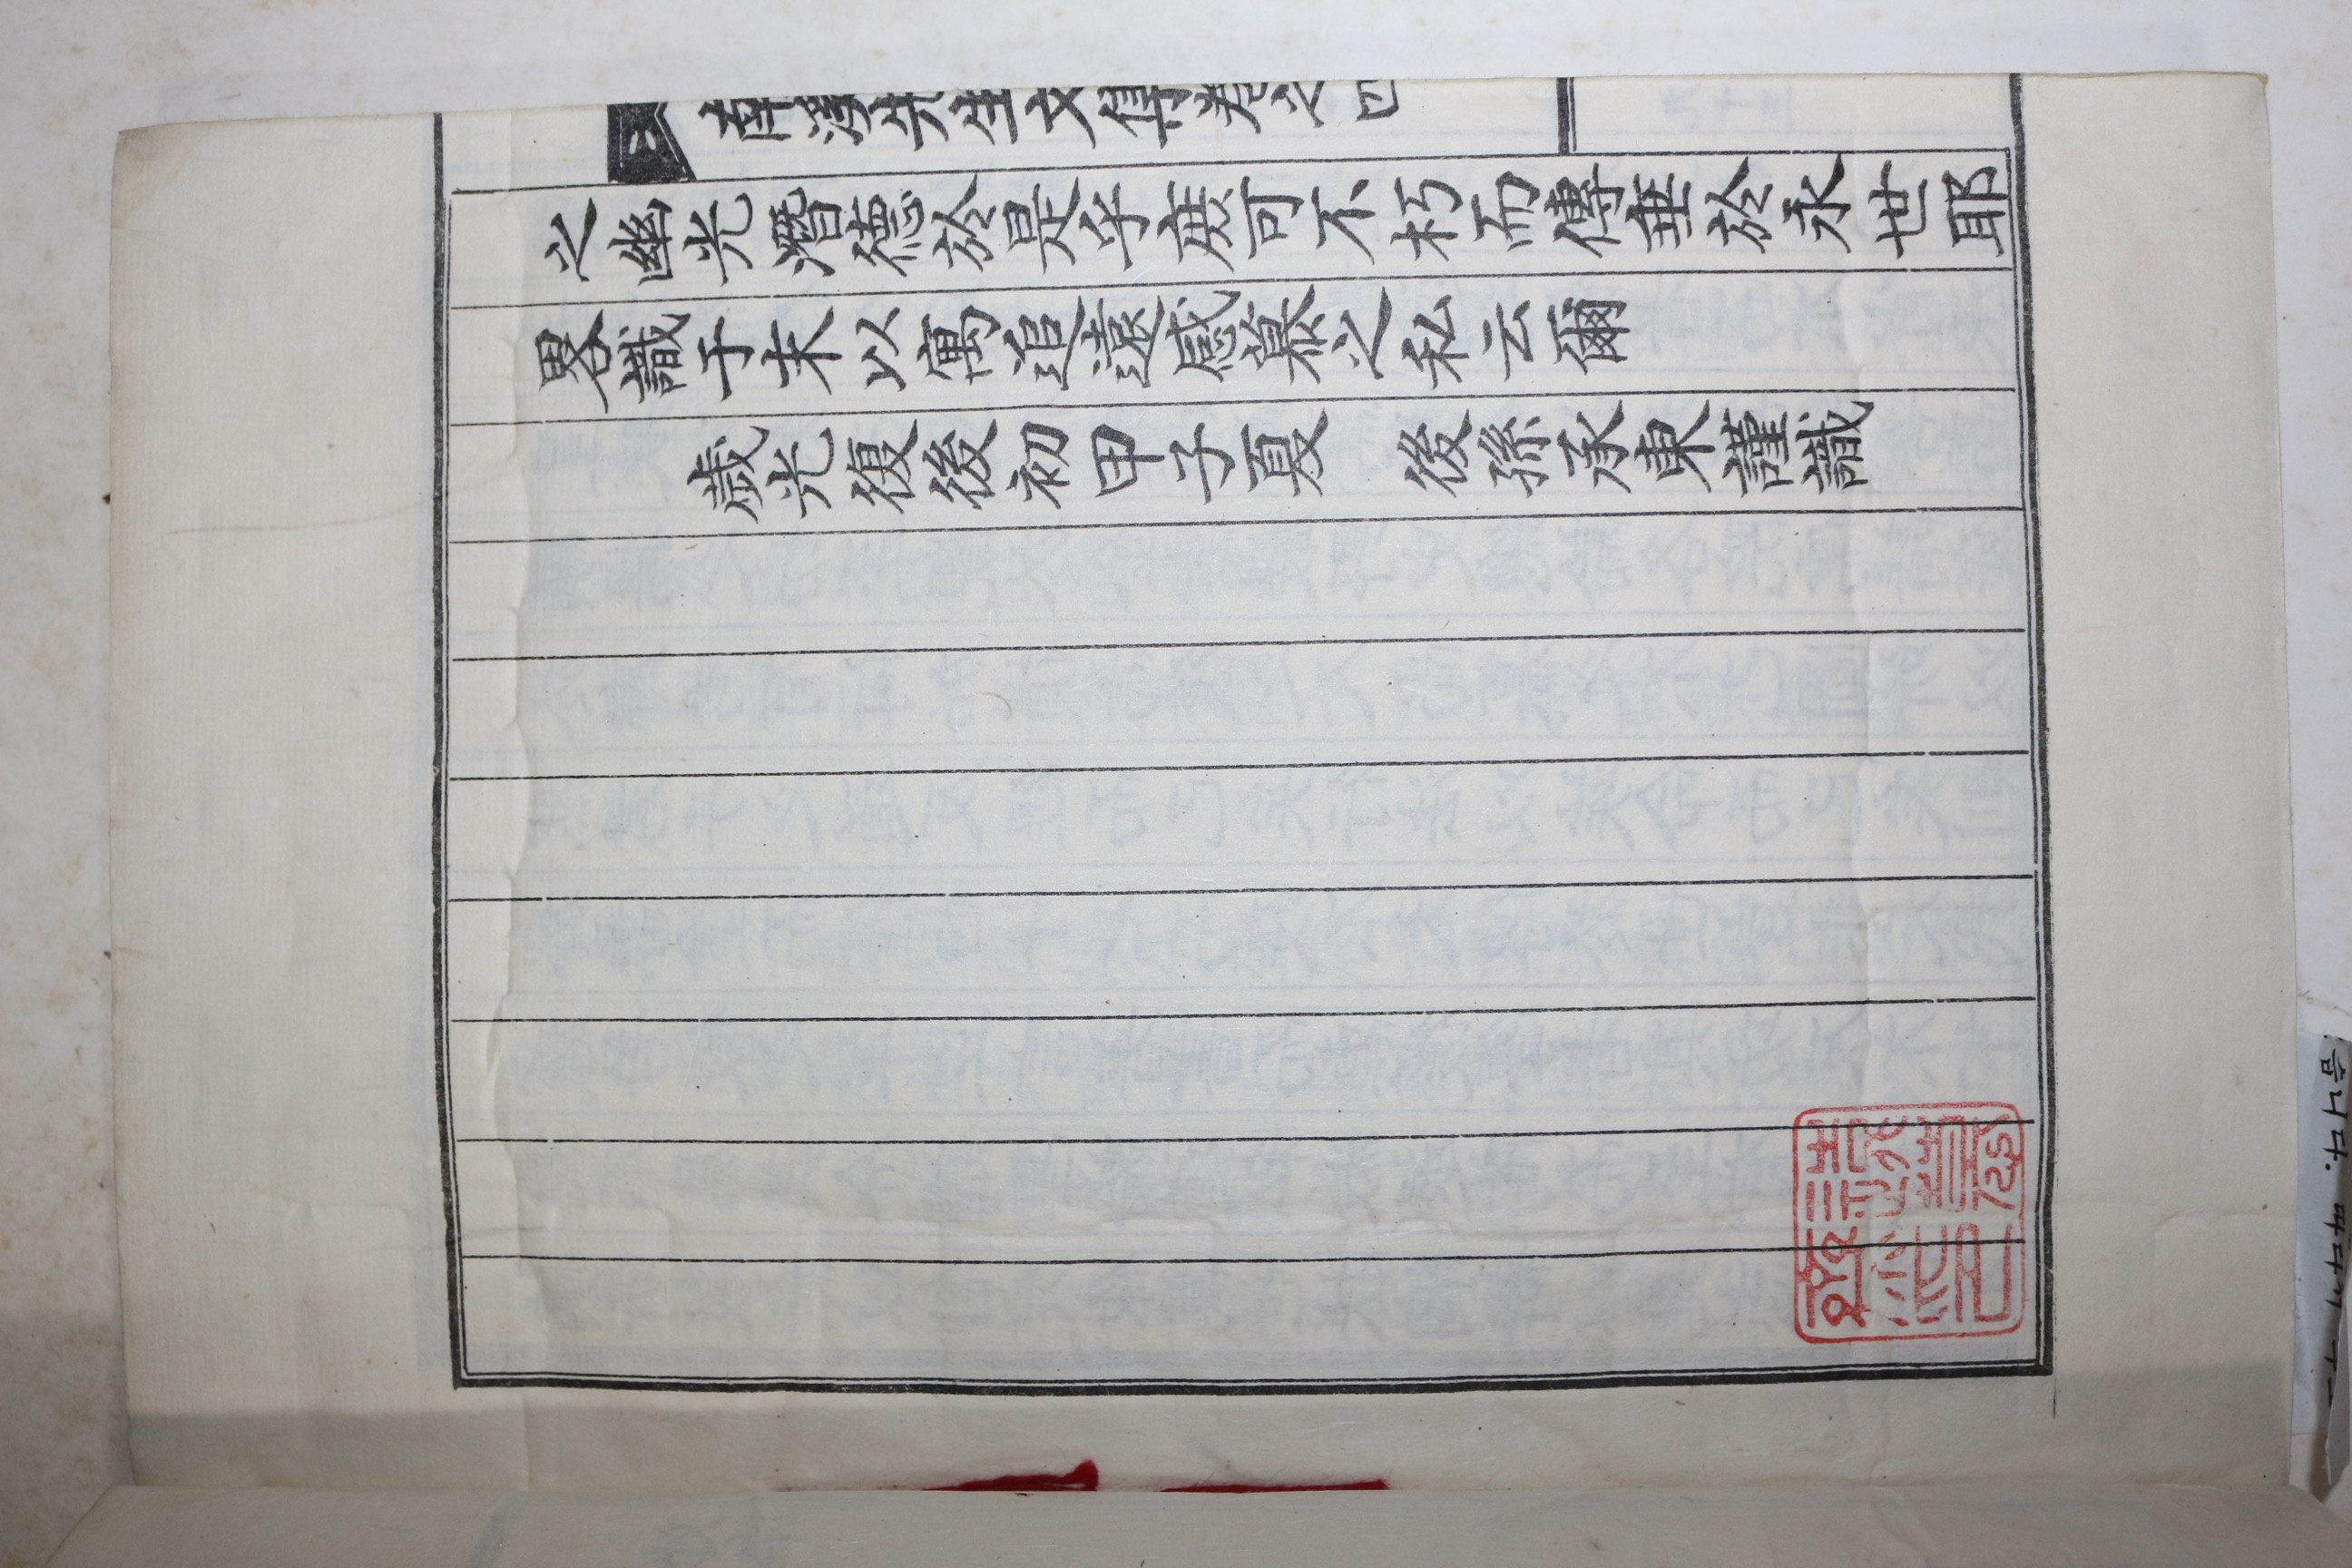 之幽光潛德於是乎庶可不朽而傳垂於永世耶
畧識于末以寓追遠感慕之私云爾
歲光復後初甲子夏 後孫承東謹識